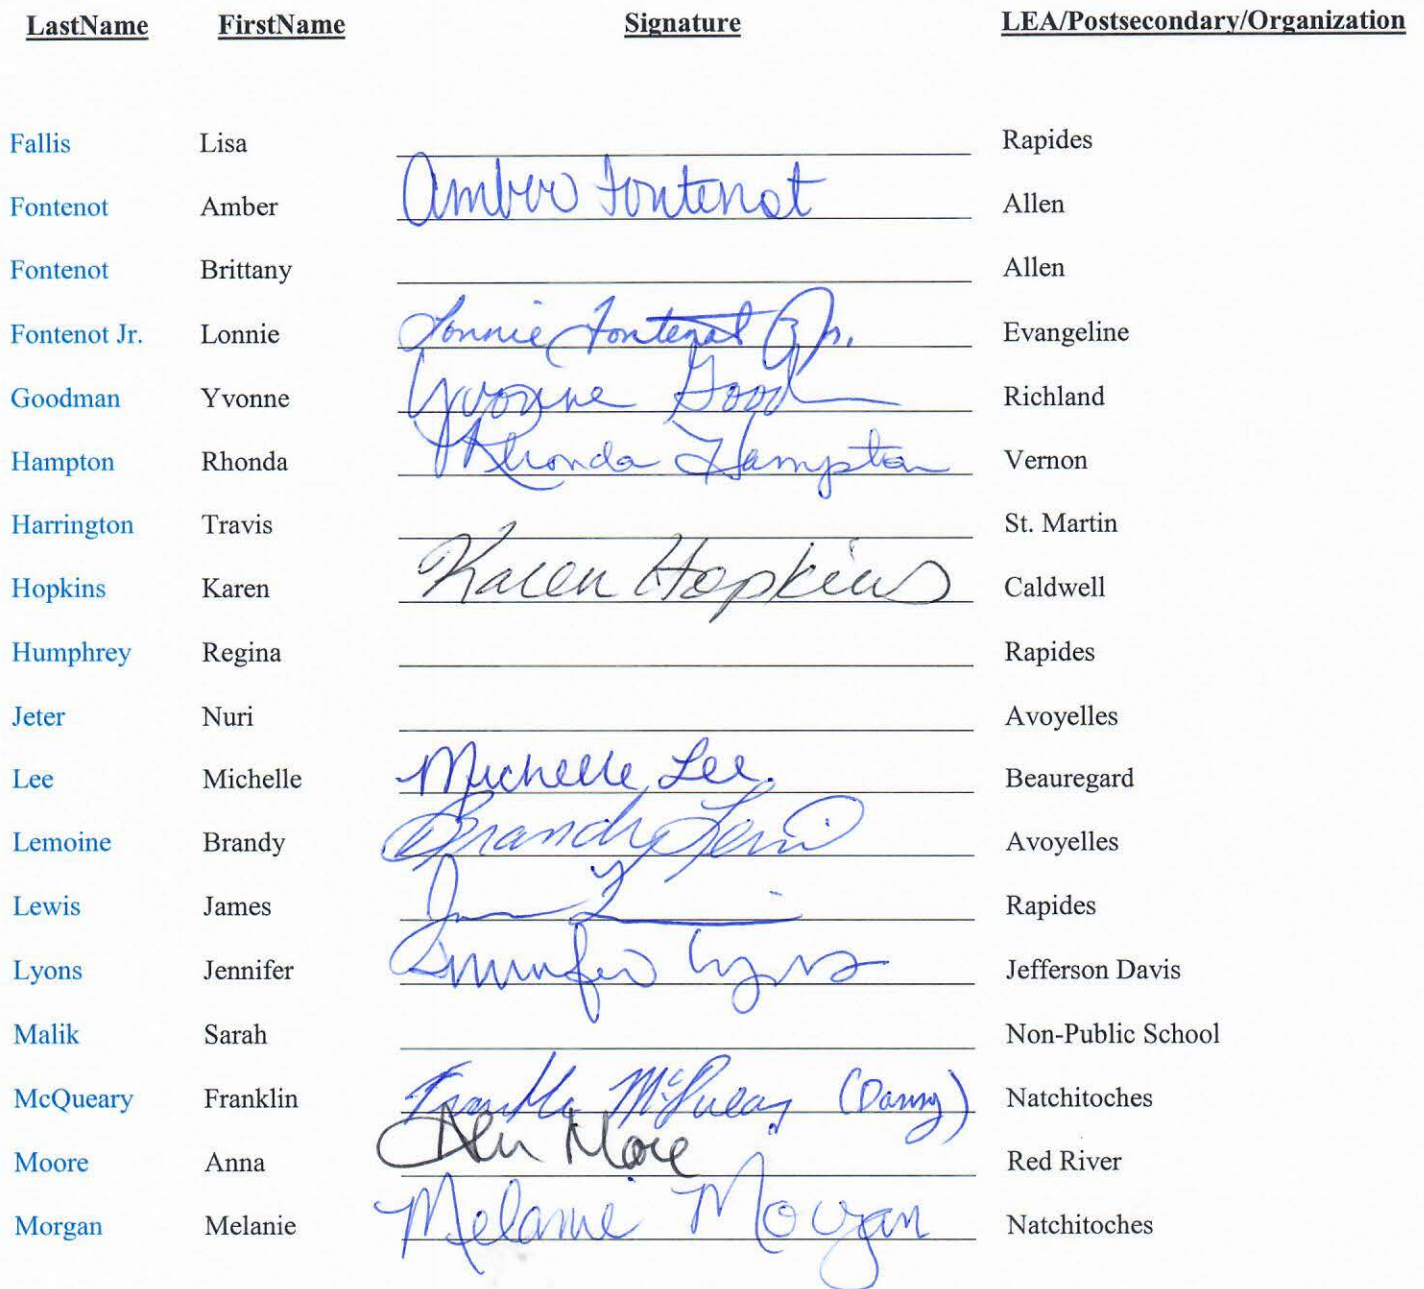 LastName FirstName Signature LEA/Postsecondary/Organization
Fallis Lisa Rapides
Fontenot Amber Amber Fontenot Allen
Fontenot Brittany Allen
Fontenot Jr. Lonnie Lonnie Fontenot Jr. Evangeline
Goodman Yvonne Yvonne Good Richland
Hampton Rhonda Rhonda Hampton Vernon
Harrington Travis St. Martin
Hopkins Karen Karen Hopkins Caldwell
Humphrey Regina Rapides
Jeter Nuri Avoyelles
Lee Michelle Michelle Lee. Beauregard
Lemoine Brandy Brandy Avoyelles
Lewis James Rapides
Lyons Jennifer Jennifer Lyons Jefferson Davis
Malik Sarah Non-Public School
McQueary Franklin McQueary (Danny) Natchitoches
Moore Anna Red River
Morgan Melanie Melanie Morgan Natchitoches